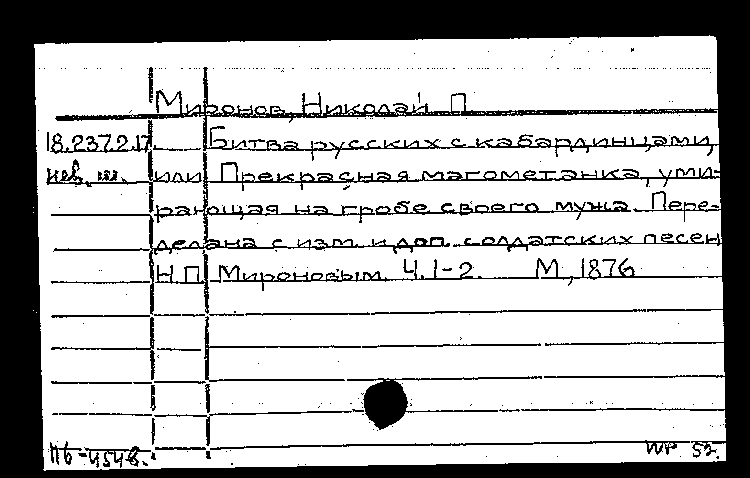 Миронов, Николай П.
18.237.2.17. Битва русских с кабардинцами,
нев. ш. или Прекрасная магометанка, уми-
рающая на гробе своего мужа. Пере-
делана с изм. и доп. солдатских песен
Н.П. Мироновым. Ч. 1-2. М., 1876
пб-4548.